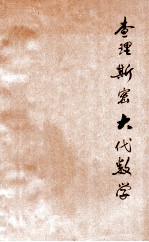 查理斯密大代数学